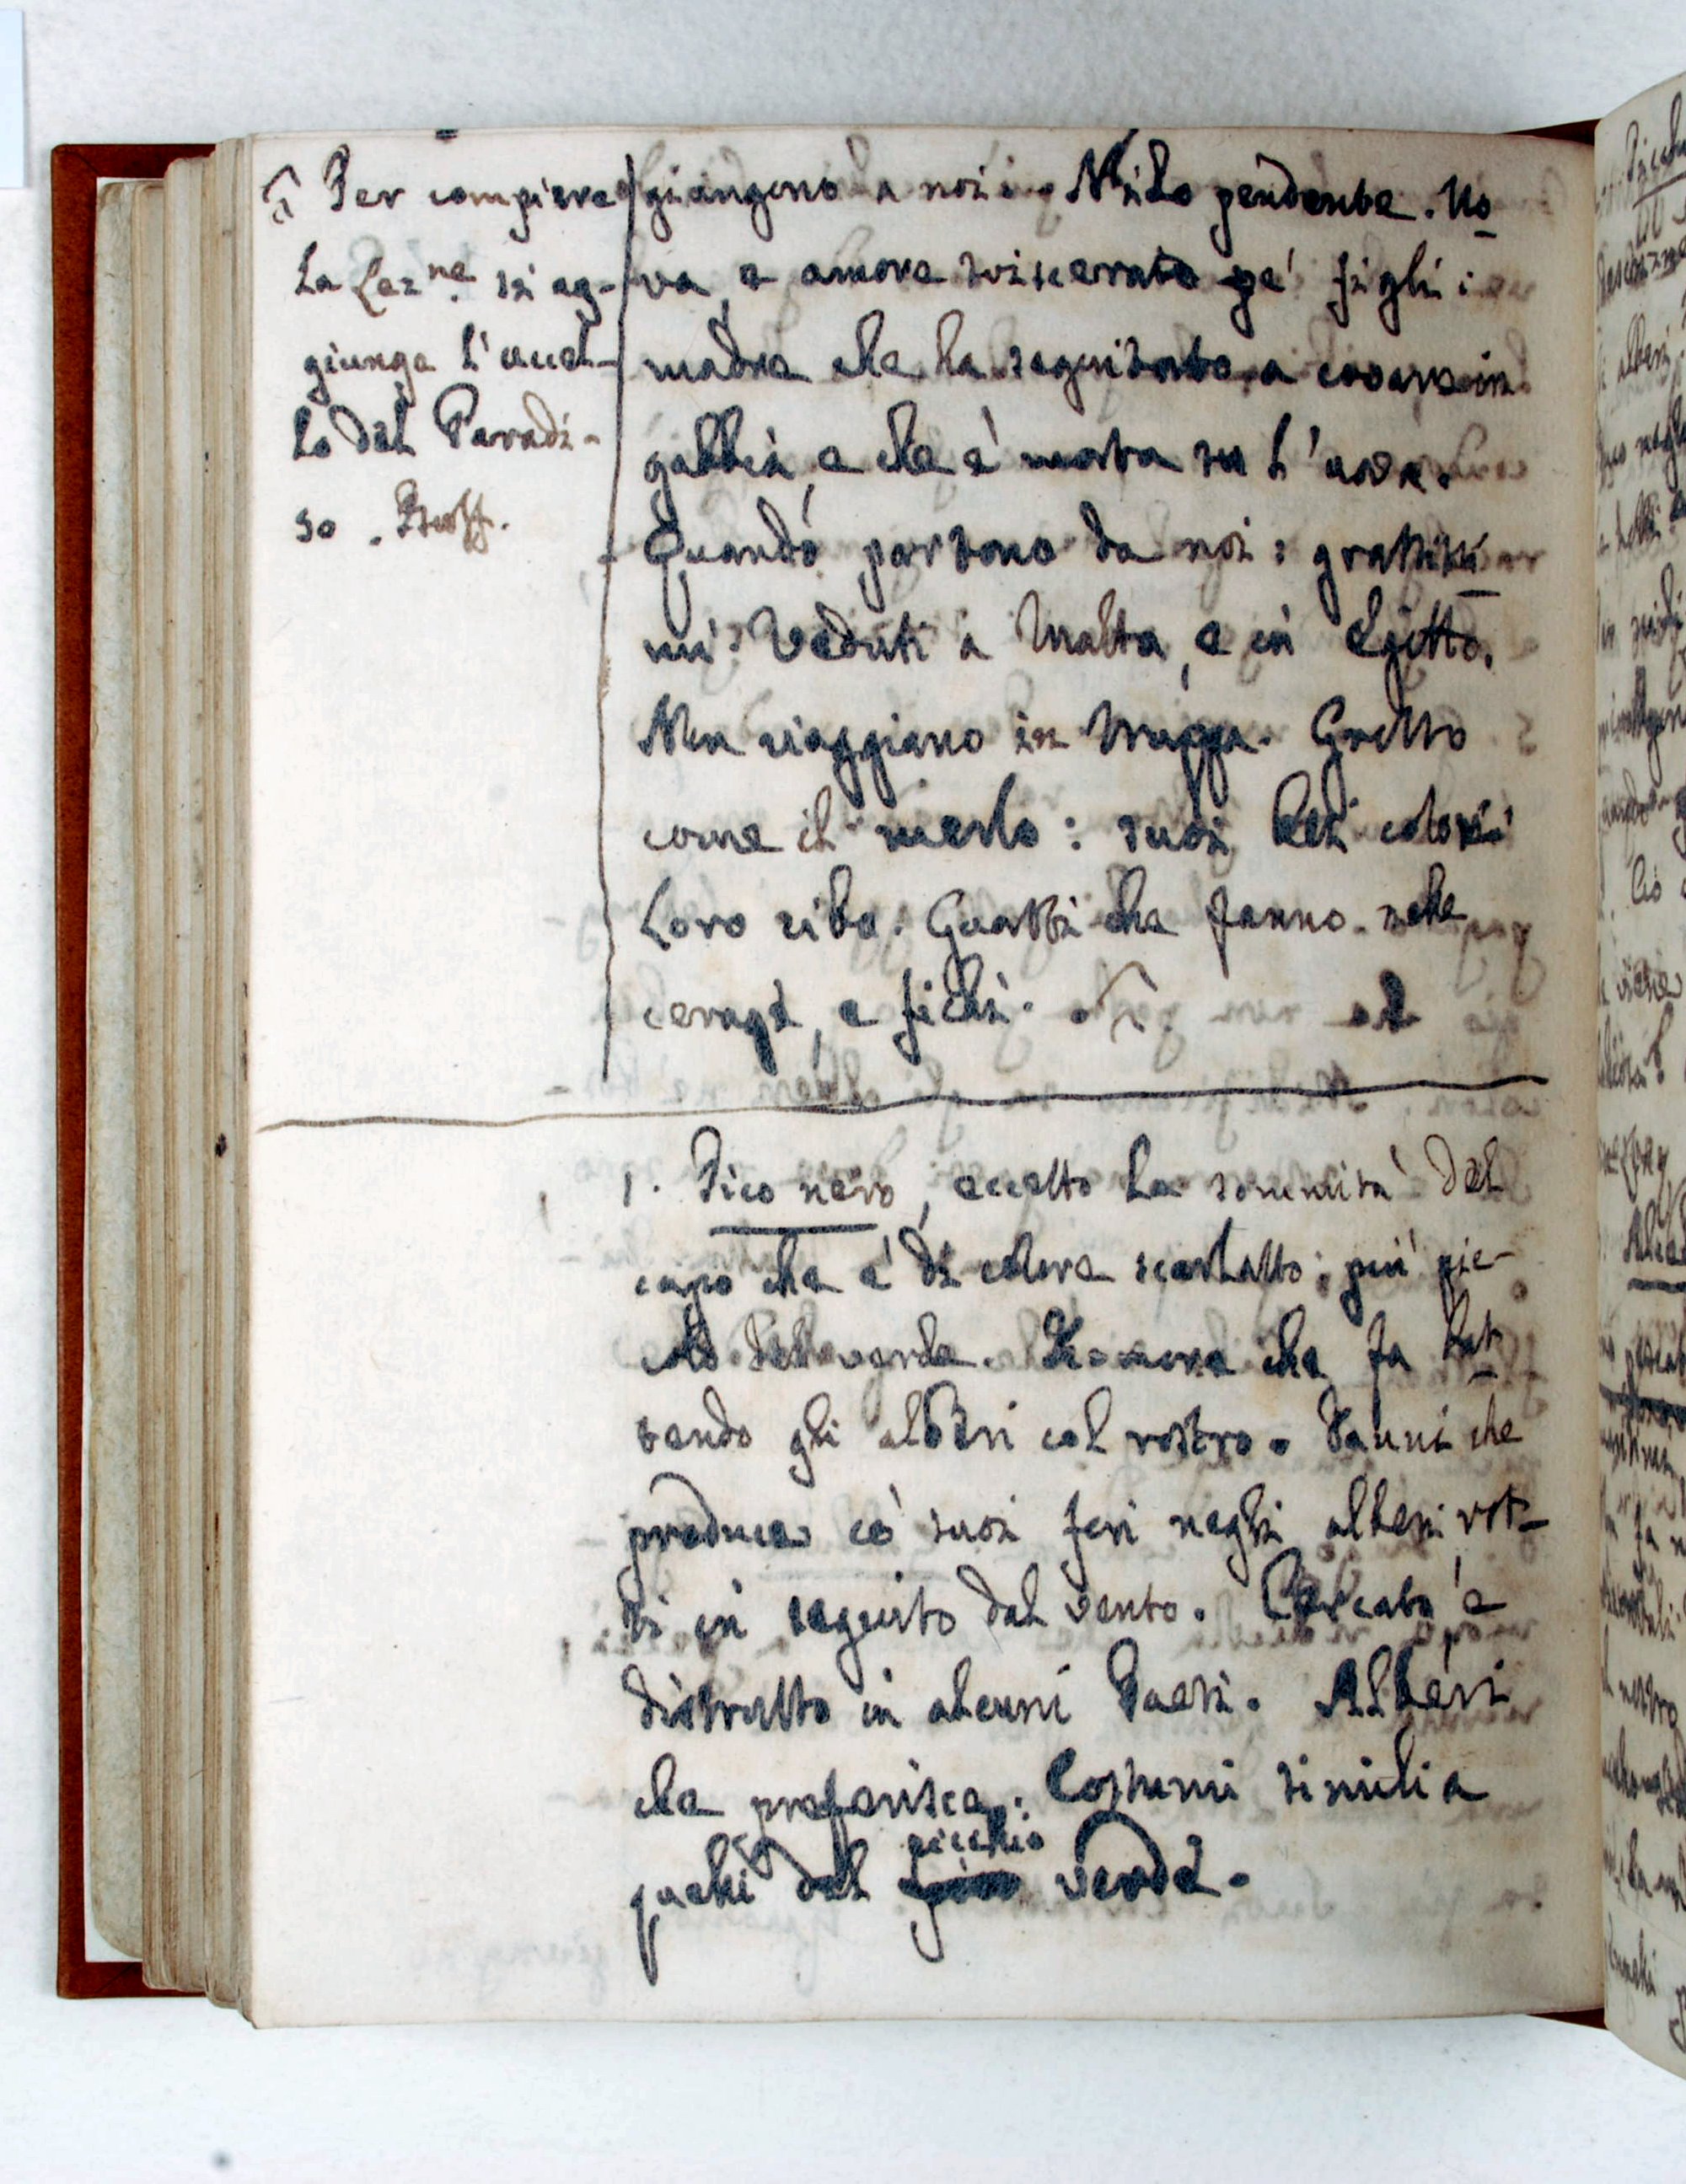 Per compiere
la Lez.ne si ag-
giunga l'uccel-
lo del Paradi-
so. Buff.
giungono a noi. Nido pendente. Uo-
va, e amore sviscerato pe' figli:
madre che ha seguitato a covare in
gabbia, e che è morta su l'uova.
Quando partono da noi: grassissi-
mi: Veduti a Malta, e in Egitto.
Non viaggiano in truppa. Grosso
come il merlo: suoi bei colori:
Loro cibo. Guasti che fanno nelle
ceragie, e fichi.
1. Pico nero, eccetto la sommità del
capo che è di colore scarlatto; più pic-
colo del verde. Rumore che fa bat-
tendo gli alberi col rostro. Danni che
produce co' suoi fori negli alberi rot-
ti in seguito dal vento. Cercato e
distrutto in alcuni Paesi. Alberi
che preferisce. Costumi simili a
quelli del picchio verde.